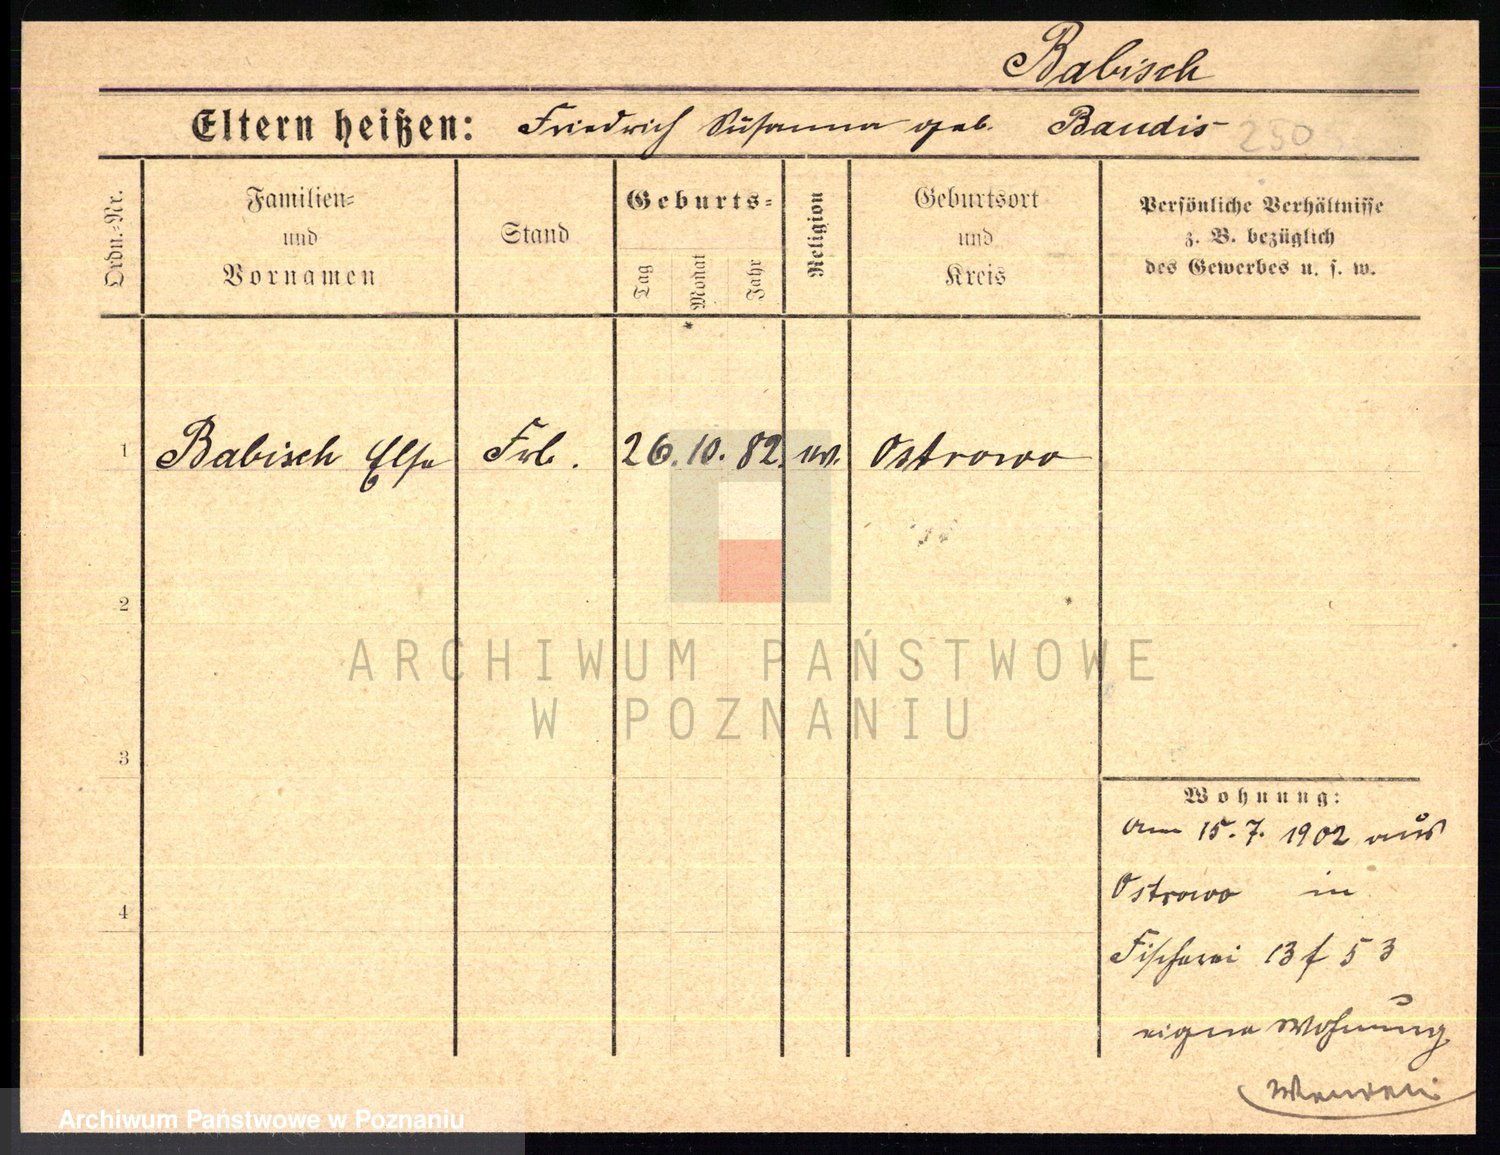 Babisch
Eltern heißen: Friedrich Susanna geb. Baudis 250
Ordn.-Nr.
Familien-
und
Vornamen
Stand
Geburts-
Tag
Monat
Jahr
Religion
Geburtsort
und
Kreis
Persönliche Verhältnisse
z. B. bezüglich
des Gewerbes u. s. w.
1 Babisch Else Frl. 26. 10. 82. ev. Ostrowo
2
3
4
Wohnung:
am 15. 7. 1902 aus
Ostrowo in
Fischerei 13 f 53
eigne Wohnung
ARCHIWUM PAŃSTWOWE
W POZNANIU
Archiwum Państwowe w Poznaniu